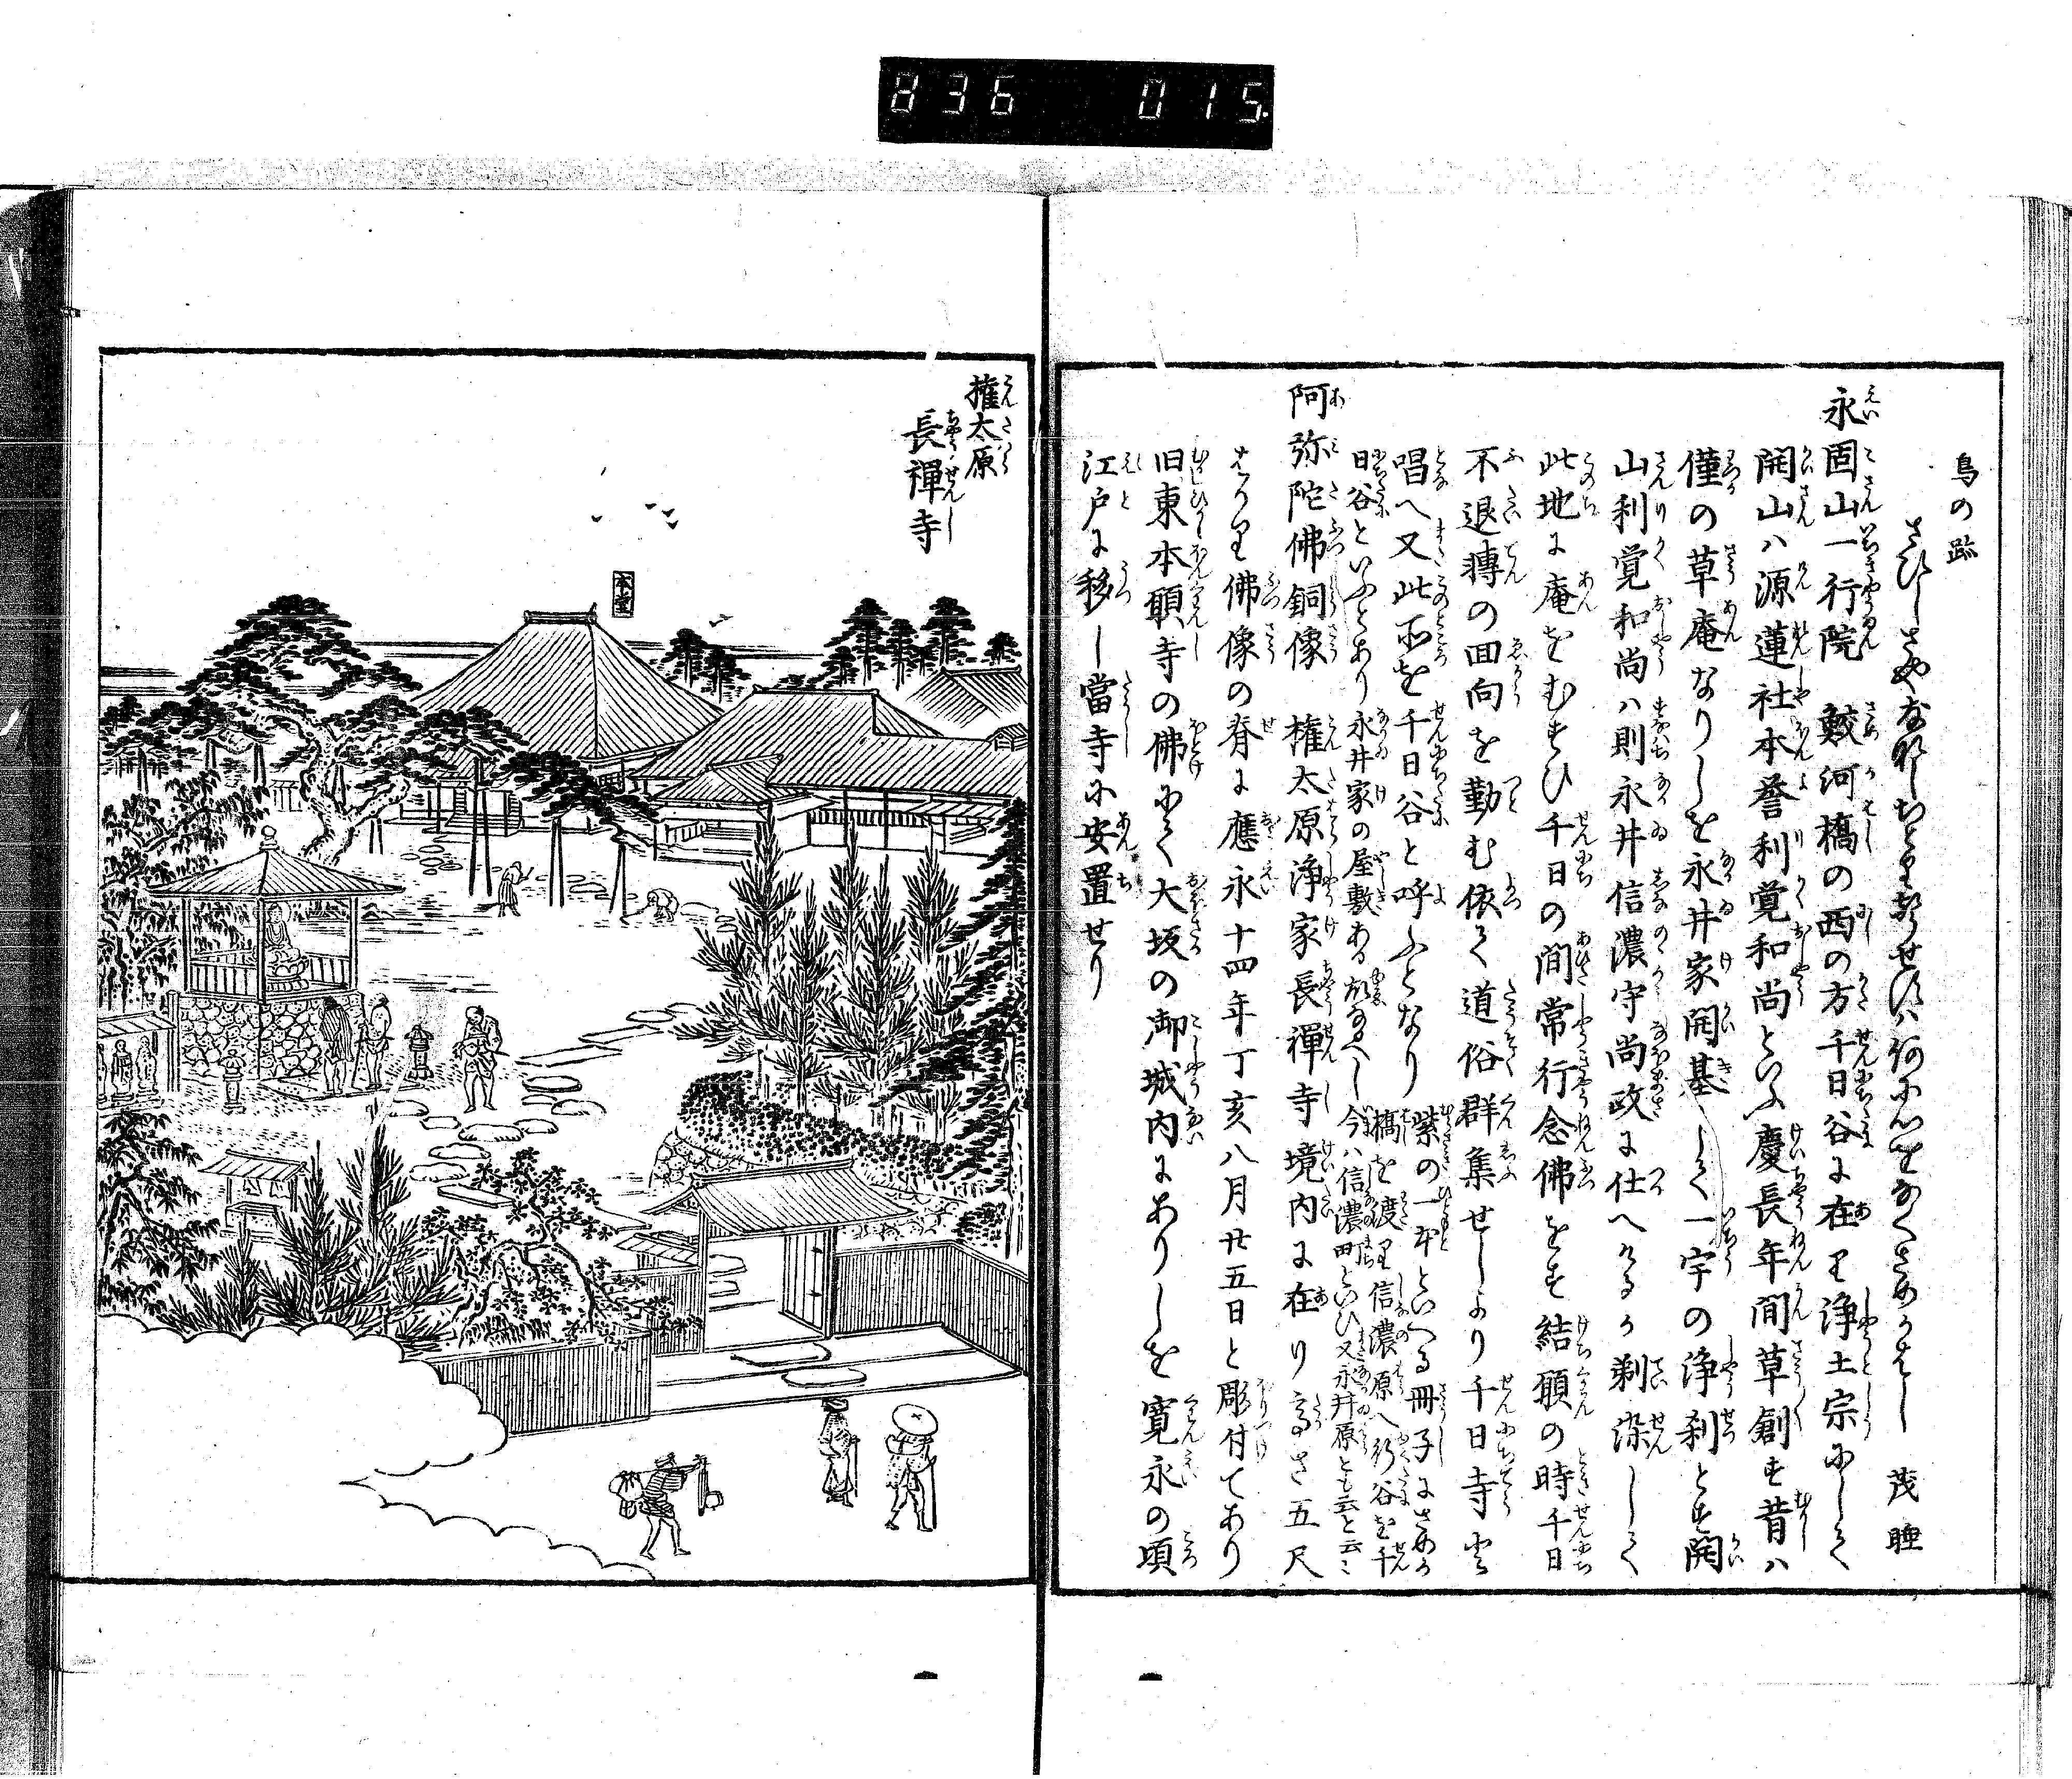 836 015
鳥の跡
さひしさや
茂睡
永固山一行院 鮫河橋の西の方千日谷に在り浄土宗にして
開山ハ源蓮社本誉利覚和尚といふ慶長年間草創す昔ハ
僅の草庵なりしを永井家開基して一宇の浄刹とす開
山利覚和尚ハ則永井信濃守尚政に仕へけるか剃染して
此地に庵をむすひ千日の間常行念佛をす結願の時千日
不退轉の回向を勤む依て道俗群集せしより千日寺と
唱へ又此所を千日谷と呼ふとなり 紫の一本といへる冊子にさめか
橋を渡り信濃原へ行谷を千
日谷といふとあり永井家の屋敷ある故なるへし今ハ信濃町といひ又永井原とも云と云々
阿弥陀佛銅像 権太原浄家長禅寺境内に在り高さ五尺
はかり佛像の脊に應永十四年丁亥八月廿五日と彫付てあり
旧東本願寺の佛にて大坂の御城内にありしを寛永の頃
江戸に移し當寺に安置せり
権太原
長禅寺
本堂